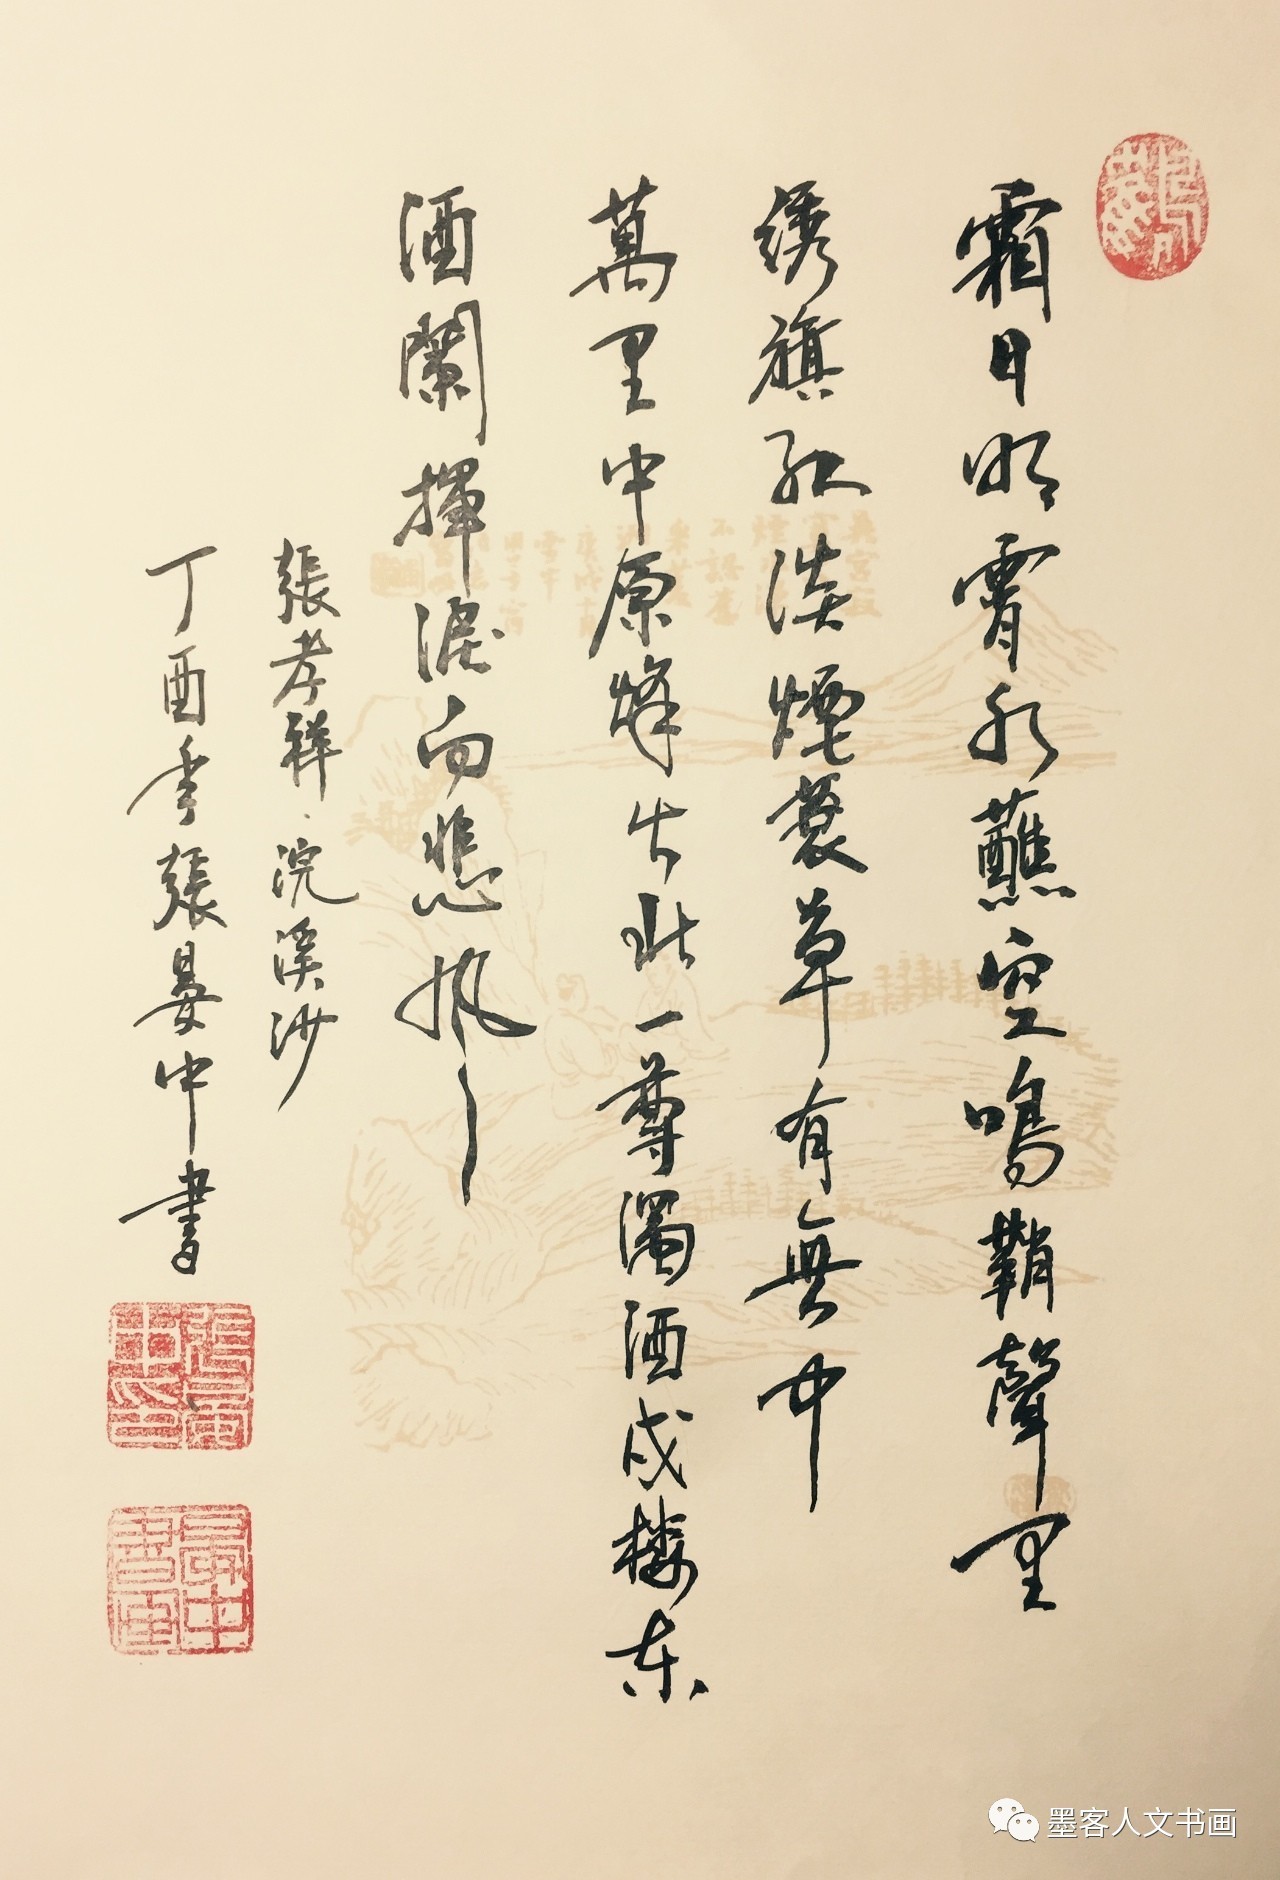 霜日明霄水蘸空鳴鞘聲里
绣旗紅淡煙衰草有無中
萬里中原烽火北一尊濁酒戍樓东
酒闌揮淚向悲風
張孝祥浣溪沙
丁酉年張晏中書
墨客人文书画